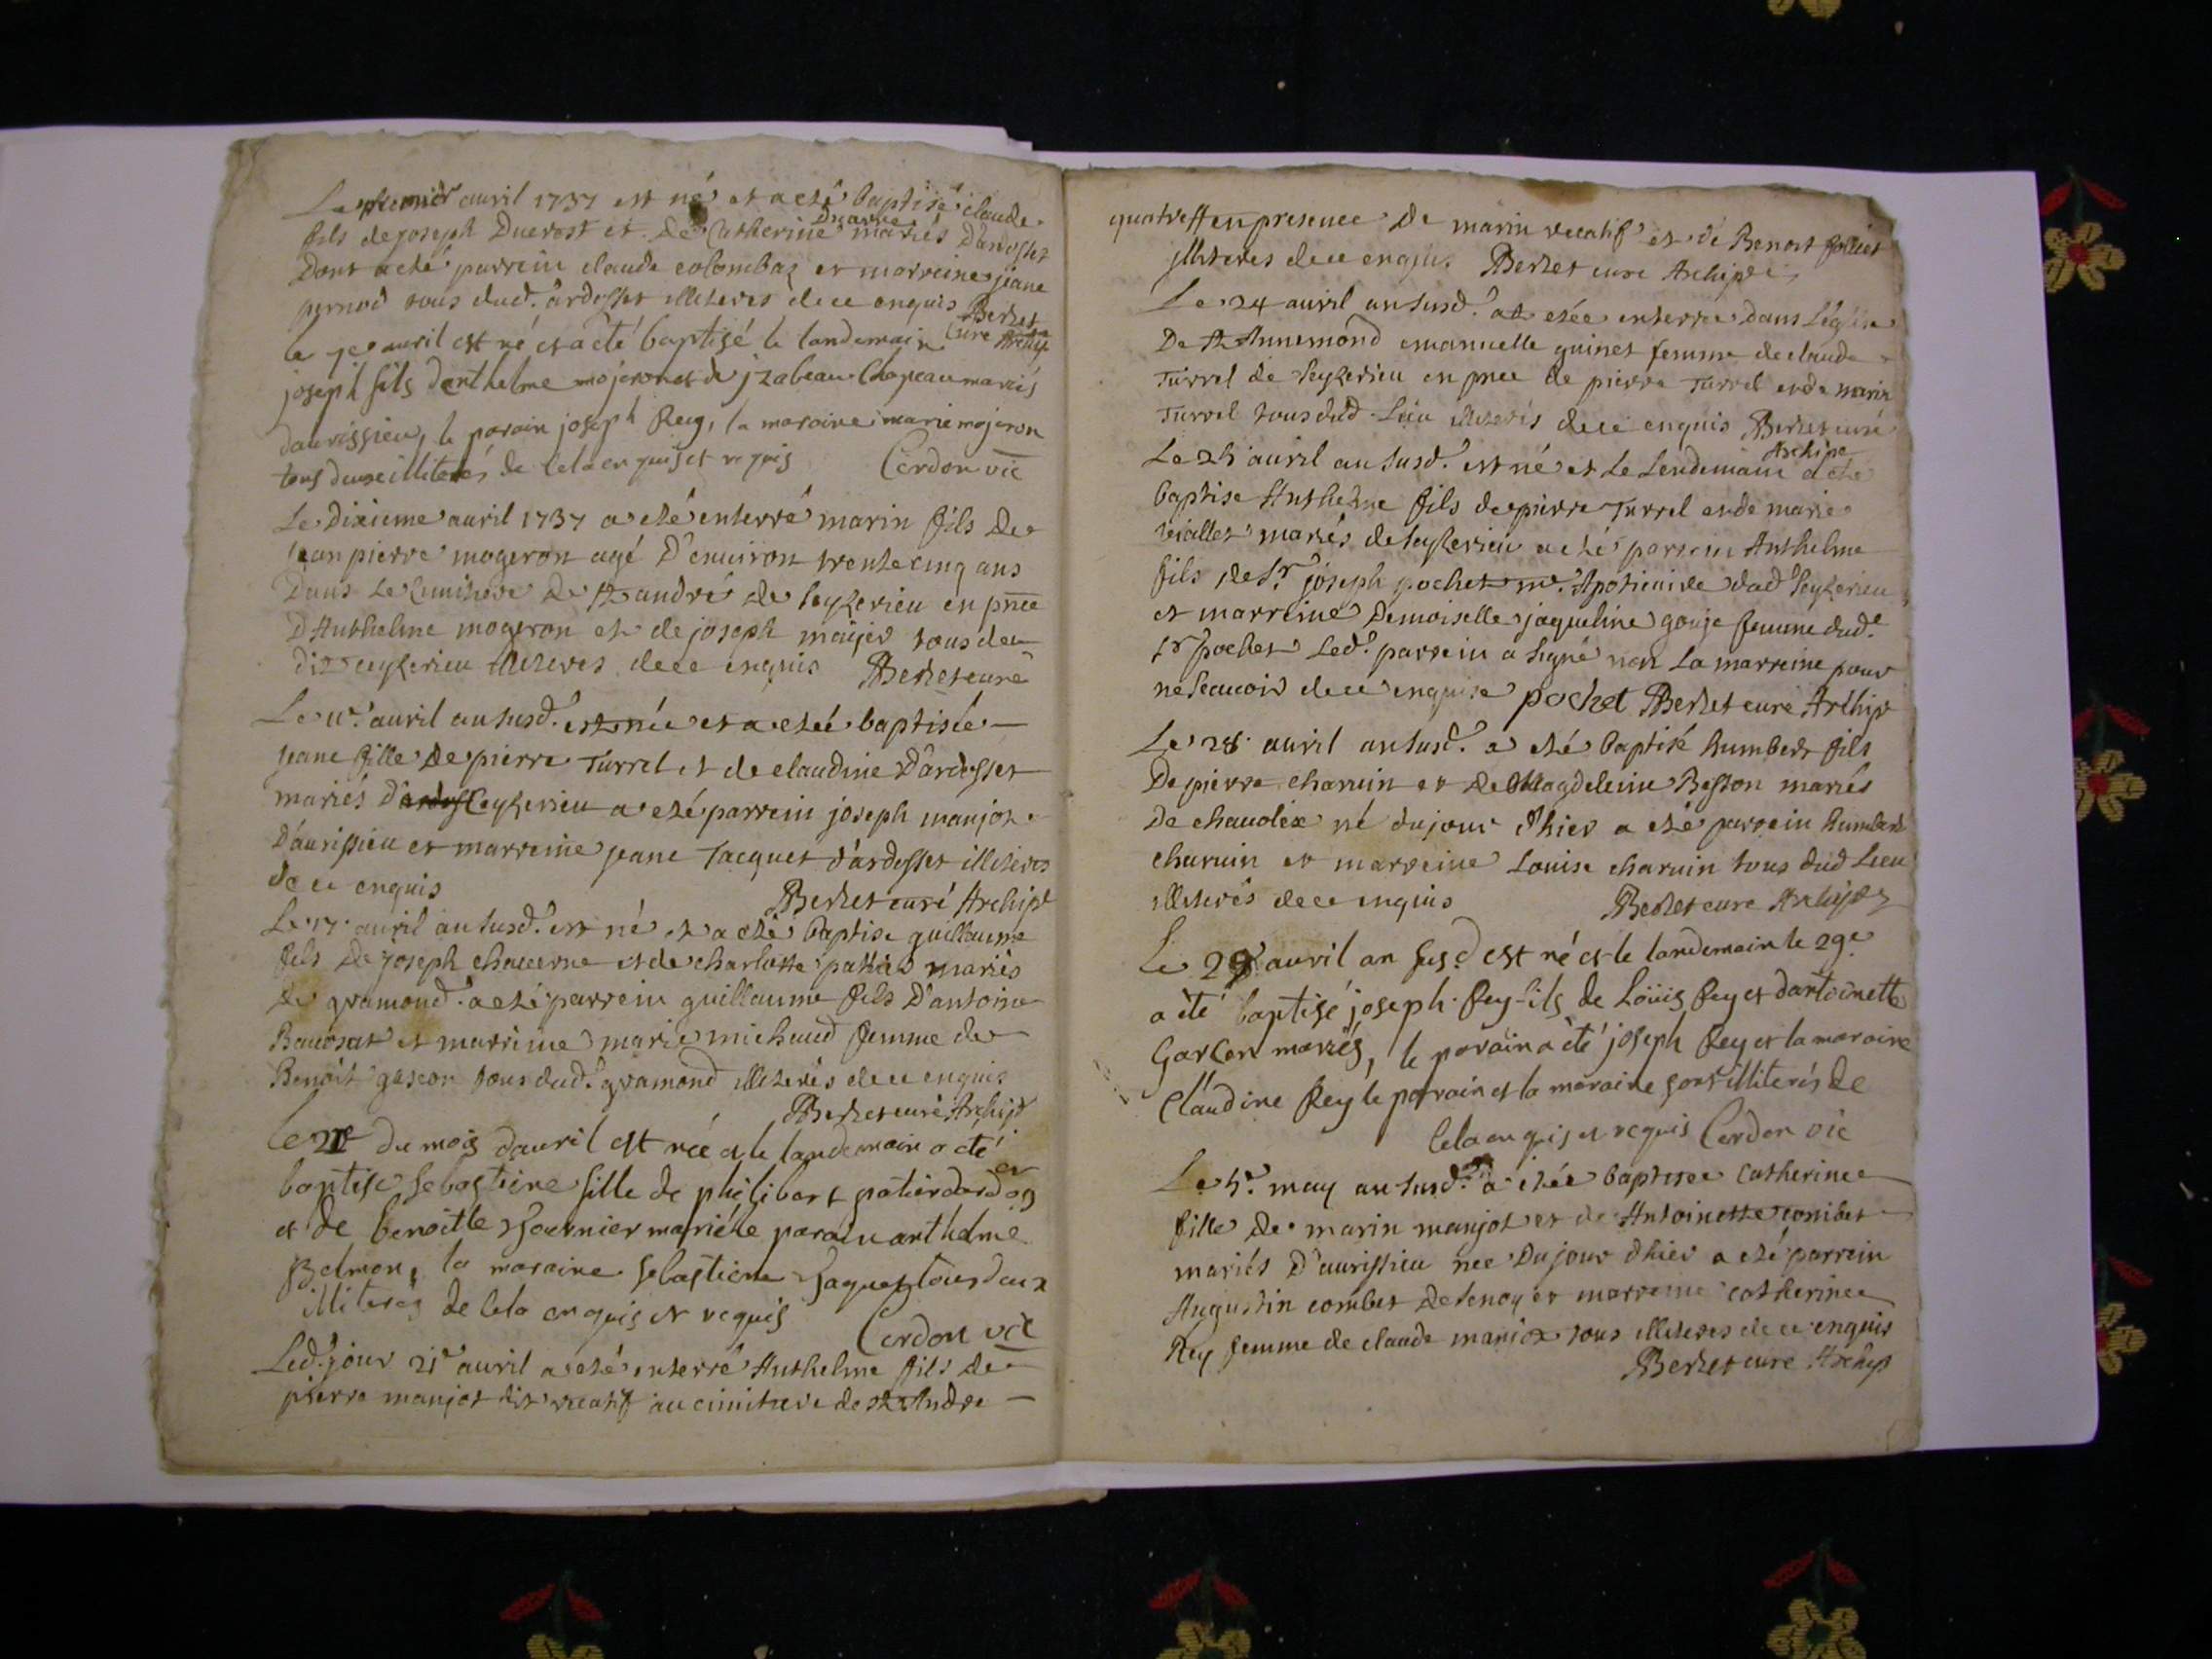 Le premier auril 1737 est né et a eté baptisé claude
fils de joseph Ducrost et de Catherine Ducarre mariés D'ardosset
Dont a eté parrein claude colombaz et marreine jeane
pernod tous dud. ardosset illiterés de ce enquis Berlet
Curé Archip
le 7e auril est né et a eté baptisé le landemain
joseph fils danthelme mojeron et de jzabeau Chapeau mariés
daurissieu, le parain joseph Rey, la maraine marie mojeron
tous deux illiterés de cela enquis et requis Cerdon vic
Le Dixieme auril 1737 a eté enterré marin fils de
jean pierre mogeron agé D'enuiron trente cinq ans
Dans Le Cimitiere De st andré de Ceyzerieu en pnce
D'Anthelme mogeron et de joseph maijer tous de
dit Ceyzerieu illiteres de ce enquis Berlet curé
Le 11e auril an susd. est née et a etée baptisée
jeane fille De pierre Turrel et de claudine D'ardosset
mariés D'ardoss Ceyzerieu a eté parrein joseph manjot
D'aurissieu et marreine jeane Jacquet d'ardosset illiteres
de ce enquis Berlet curé Archip
Le 17 auril an susd. est né et a eté baptise guillaume
fils De joseph chauerne et de charlotte pattier mariés
de gramond. a eté parrein guillaume fils D'antoine
Bauorat et marreine marie michaud femme de
Benoit gascon tous dud. gramond illiterés de ce enquis
Berlet curé Archip
le 21e du mois dauril est née et le landemain a eté
baptise sebastiene fille de philibert patier dardosset
et de benoitte fournier mariés le parain anthelme
Belmon, la maraine sebastiene Jaquet tous deux
illiterés de cela enquis et requis Cerdon vic
Led. jour 21e auril a eté enterré Anthelme fils de
pierre manjot dit recatif au cimitiere de st Andre
quatre ff en presence De marin recatif et de Benoit folliet
jlliteres de ce enquis Berlet cure Archip
Le 24 auril an susd. a etée enterrée dans l'église
De st Annemond emanuelle guinet femme de claude
Turrel de Ceyzerieu en pnce de pierre Turrel et de marin
Turrel tous dud. Lieu illiterés de ce enquis Berlet curé
Archipe
Le 25 auril an susd. est né et Le Lendemain a eté
baptise Anthelme fils de pierre Turrel et de marie
vialet mariés de Ceyzerieu a eté parrein Anthelme
fils de Sr joseph pochet me Apoticaire dud Ceyzerieu
et marreine Demoiselle jaqueline gouje femme dud.
Sr pochet Led. parrein a signé non La marreine pour
ne Scauoir de ce enquise pochet Berlet curé Archip
Le 28 auril an susd. a eté baptisé humbert fils
De pierre charuin et de Magdeleine Besson mariés
De chauoleix né du jour d'hier a eté parrein humbert
charuin et marreine Louise charuin tous dud Lieu
illiterés de ce enquis Berlet cure Archip
Le 28 auril an susd est né et le landemain le 29e
a été baptisé joseph Rey fils de Loüis Rey et dantoinette
Garcon mariés, le parain a été joseph Rey et la maraine
Claudine Rey le parrain et la maraine sont illiterés de
cela enquis et requis Cerdon vic
Le 5e may an susd. a etée baptisee Catherine
fille de marin manjot et de Antoinette combet
mariés D'aurissieu nee Du jour d'hier a eté parrein
Augustin combet de tenay et marreine catherine
Rey femme de claude maniot tous illiteres de ce enquis
Berlet cure Archip